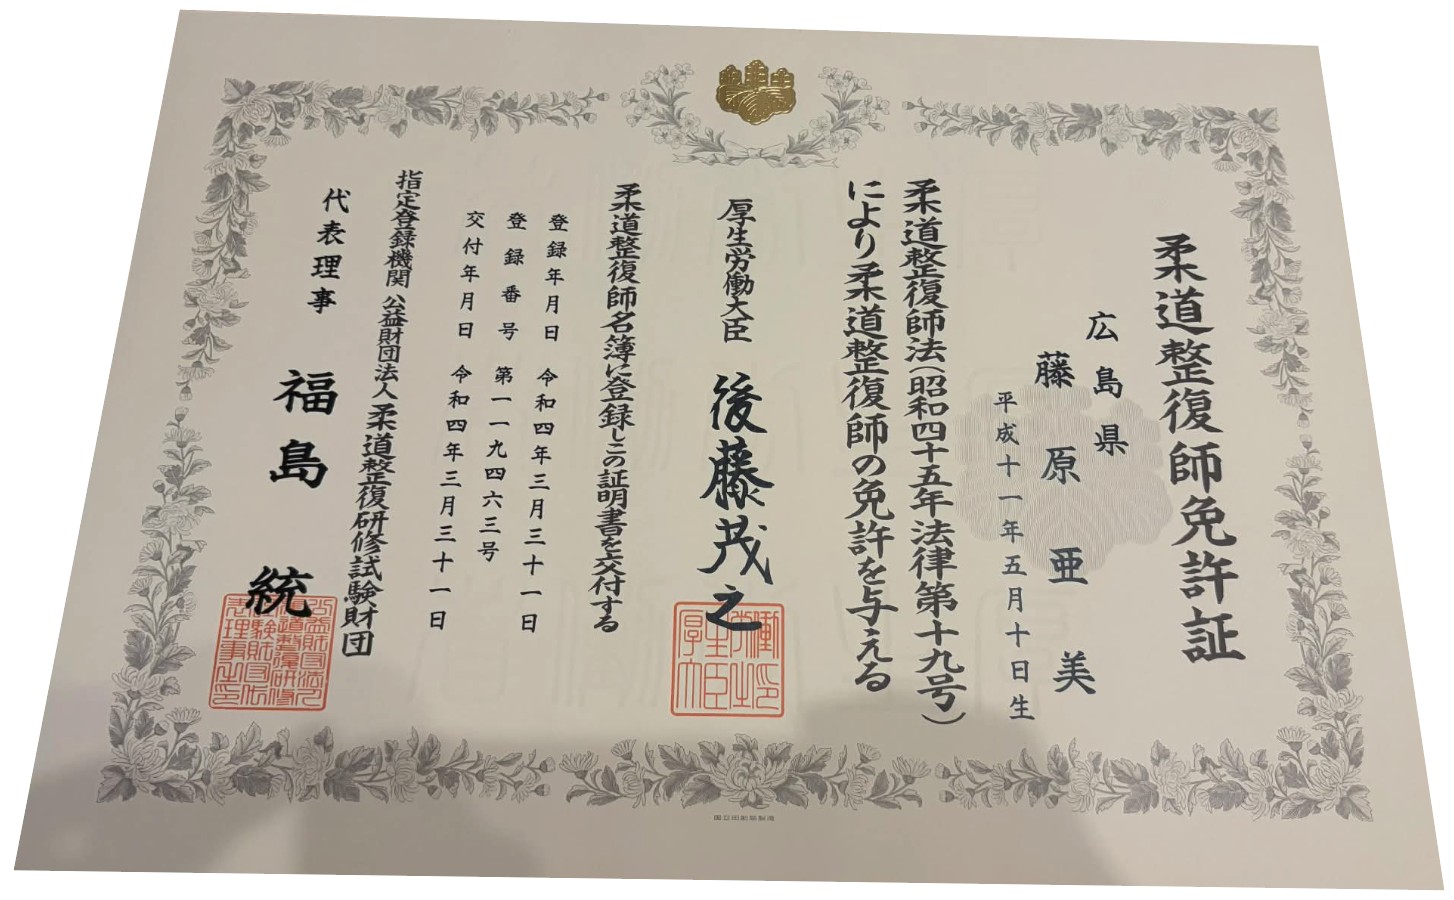 柔道整復師免許証
広島県
藤原亜美
平成十一年五月十日生
柔道整復師法（昭和四十五年法律第十九号）
により柔道整復師の免許を与える
厚生労働大臣 後藤茂之
柔道整復師名簿に登録しこの証明書を交付する
登録年月日 令和四年三月三十一日
登録番号 第一一九四六三号
交付年月日 令和四年三月三十一日
指定登録機関 公益財団法人柔道整復研修試験財団
代表理事 福島統
国立印刷局製造